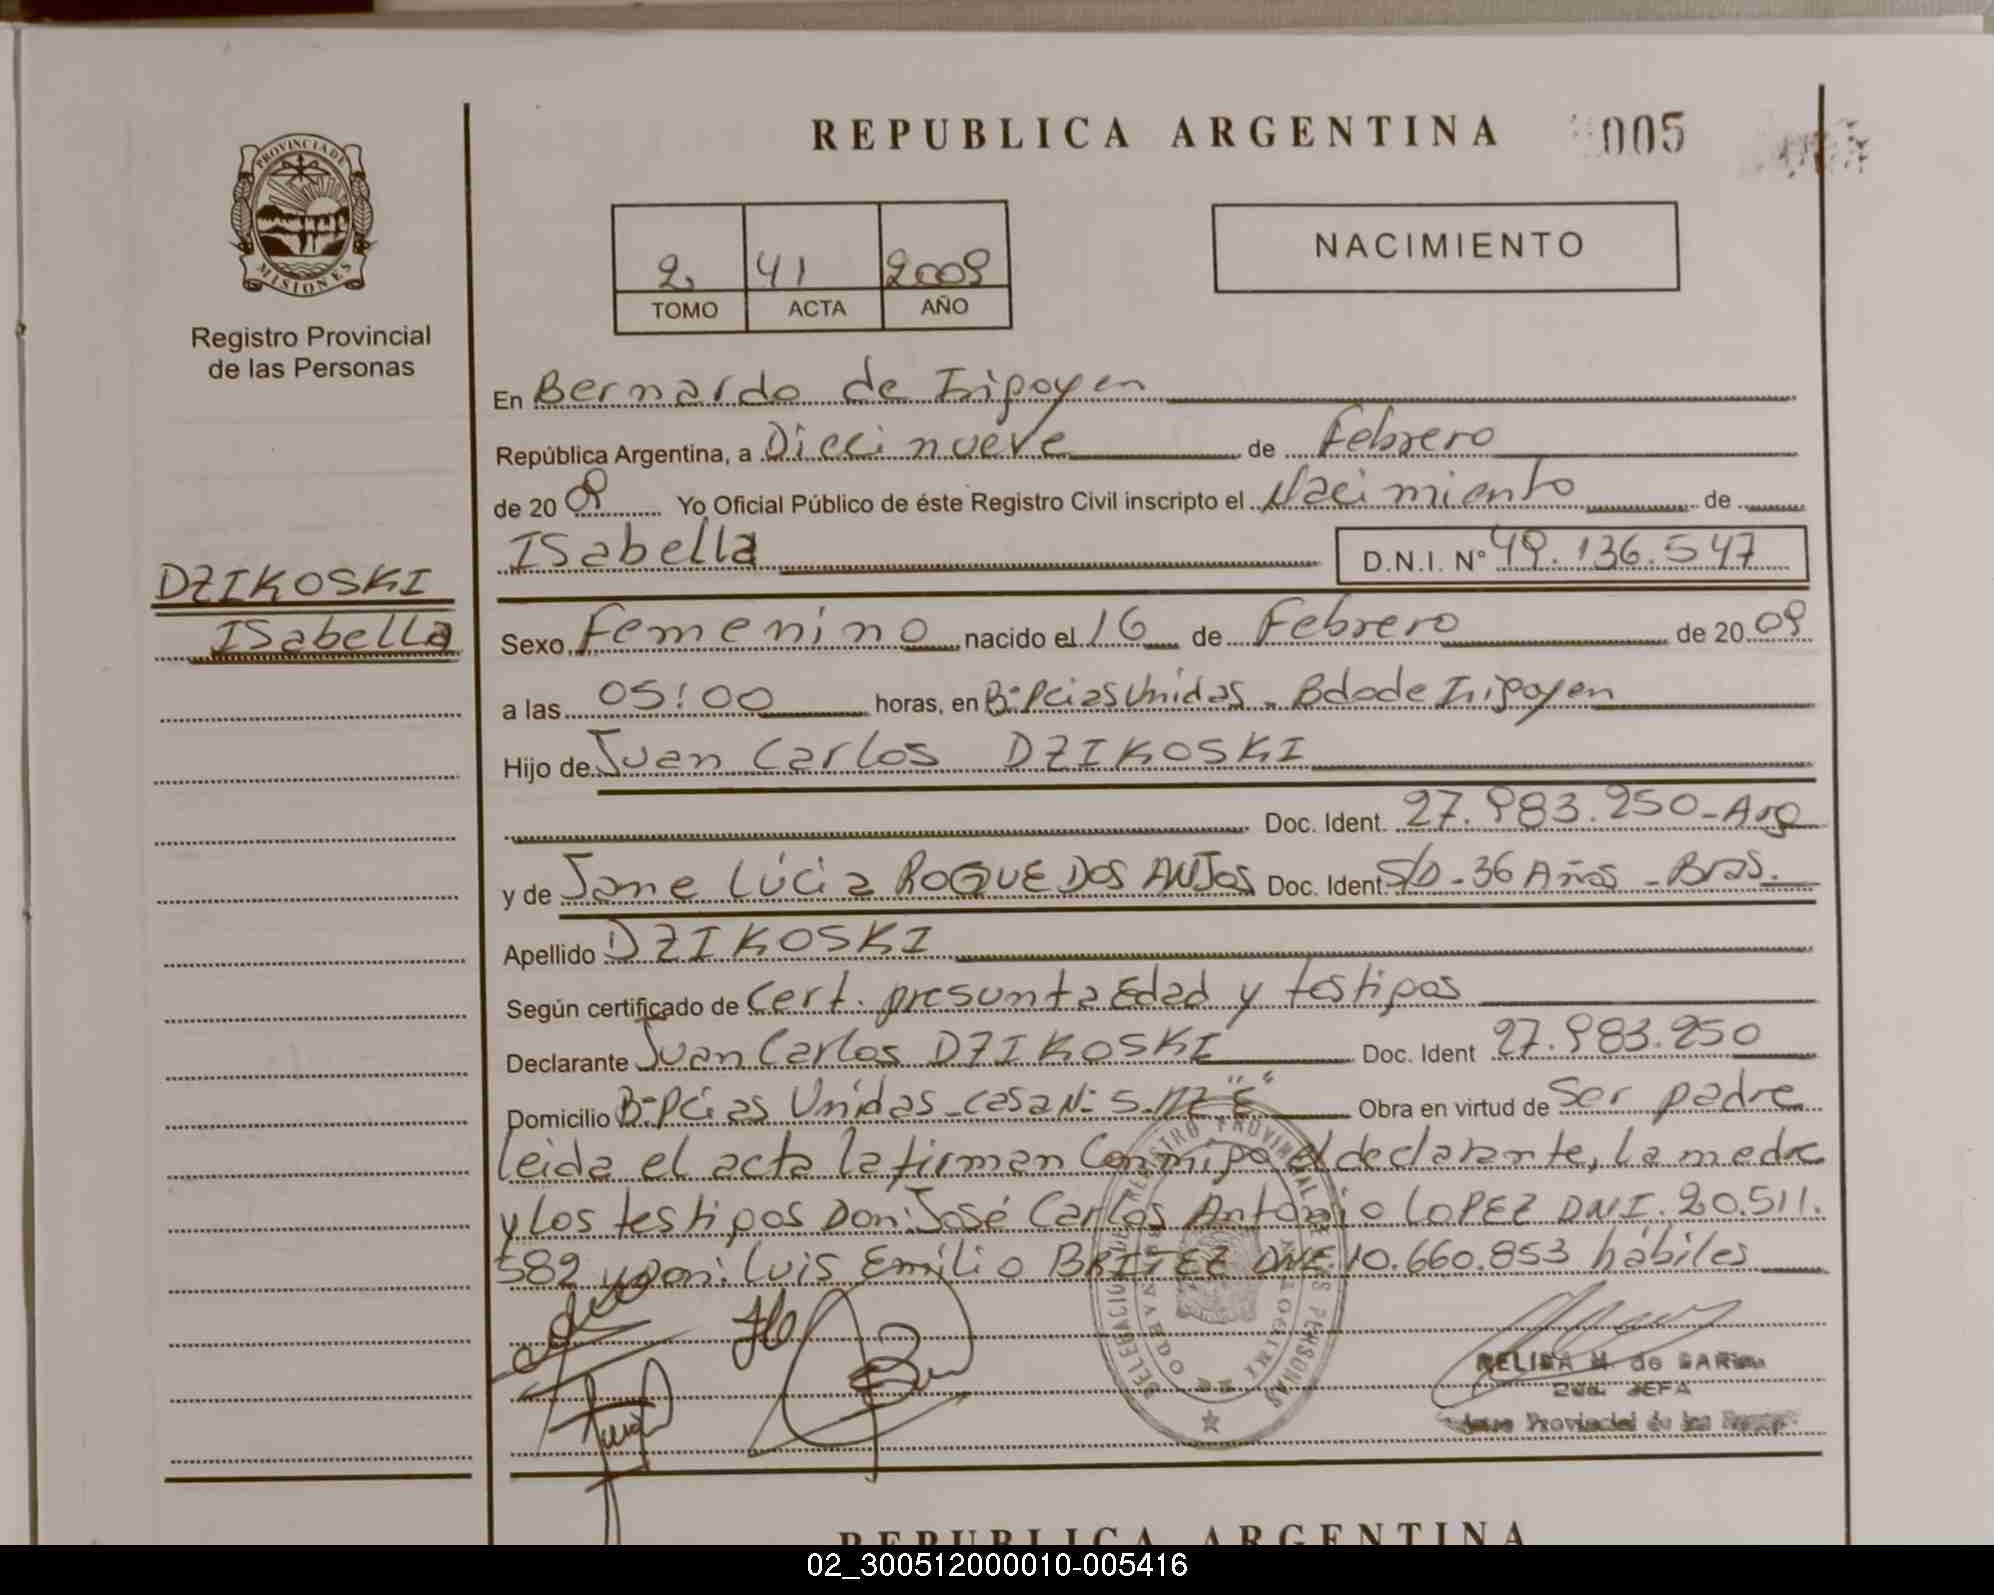 REPUBLICA ARGENTINA 005
PROVINCIA DE
MISIONES
Registro Provincial
de las Personas
2 41 2009
TOMO ACTA AÑO
NACIMIENTO
En Bernardo de Irigoyen
República Argentina, a Dieci nueve de Febrero
de 2009 Yo Oficial Público de éste Registro Civil inscripto el Nacimiento de
Isabella D.N.I. Nº 49.136.547
DZIKOSKI
Isabella
Sexo Femenino nacido el 16 de Febrero de 2009
a las 05:00 horas, en Bº Pcias Unidas - Bdo de Irigoyen
Hijo de Juan Carlos DZIKOSKI
Doc. Ident. 27.983.250 - Arg
y de Jane Lúcia ROQUE DOS ANJOS Doc. Ident S/D - 36 Años - Bras.
Apellido DZIKOSKI
Según certificado de Cert. presunta Edad y testigos
Declarante Juan Carlos DZIKOSKI Doc. Ident 27.983.250
Domicilio Bº Pcias Unidas - casa Nº 5 - MZ "E" Obra en virtud de Ser padre
Leida el acta la firman Conmigo el declarante, la madre
y Los testigos Don: José Carlos Antonio LOPEZ DNI. 20.511.
582 y Don: Luis Emilio BRITEZ DNI. 10.660.853 hábiles
DELEGACION DE REGISTRO PROVINCIAL DE LAS PERSONAS
BERNARDO DE IRIGOYEN
2da. JEFA
Provincial de las
REPUBLICA ARGENTINA
02_300512000010-005416